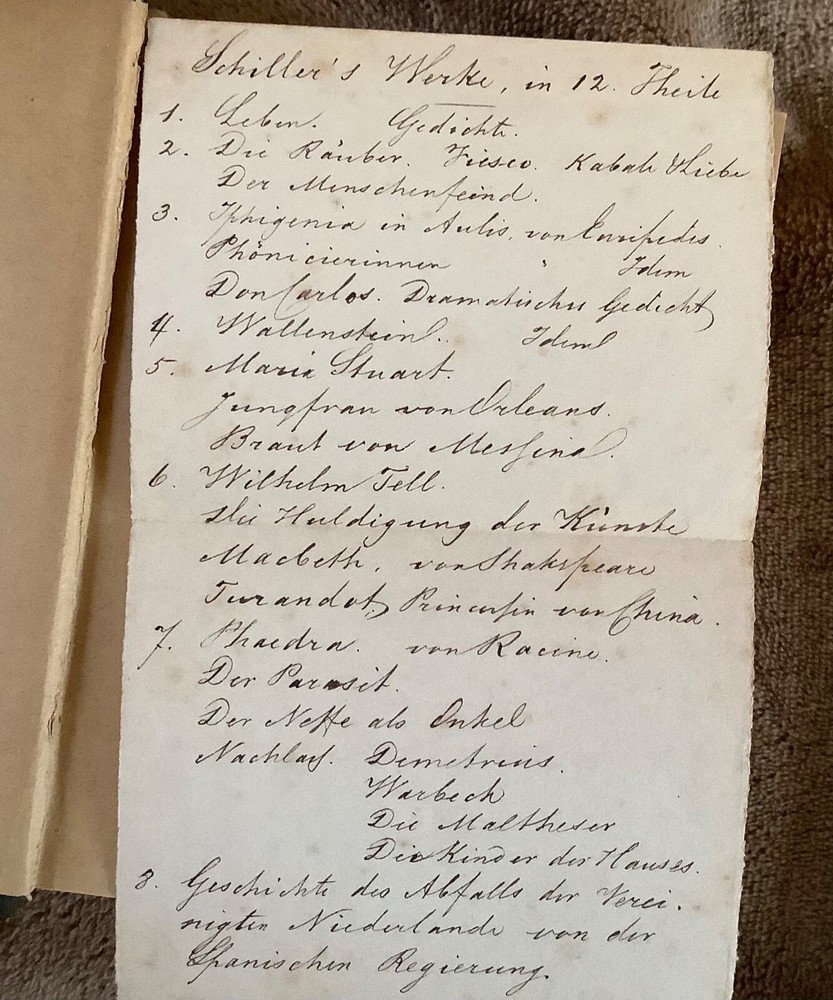 Schiller's Werke, in 12. Theile
1. Leben. Gedichte.
2. Die Räuber. Fiesco. Kabale & Liebe
Der Menschenfeind.
3. Iphigenia in Aulis, von Euripedes.
Phönicierinnen " Idem
Don Carlos. Dramatisches Gedicht
4. Wallenstein. Idem
5. Maria Stuart.
Jungfrau von Orleans.
Braut von Messina.
6. Wilhelm Tell.
Die Huldigung der Künste
Macbeth, von Shakspeare
Turandot, Princessin von China.
7. Phaedra. von Racine.
Der Parasit.
Der Neffe als Onkel
Nachlaß. Demetrius.
Warbeck
Die Maltheser
Die Kinder der Hauses.
8. Geschichte des Abfalls der Verei-
nigten Niederlande von der
Spanischen Regierung.